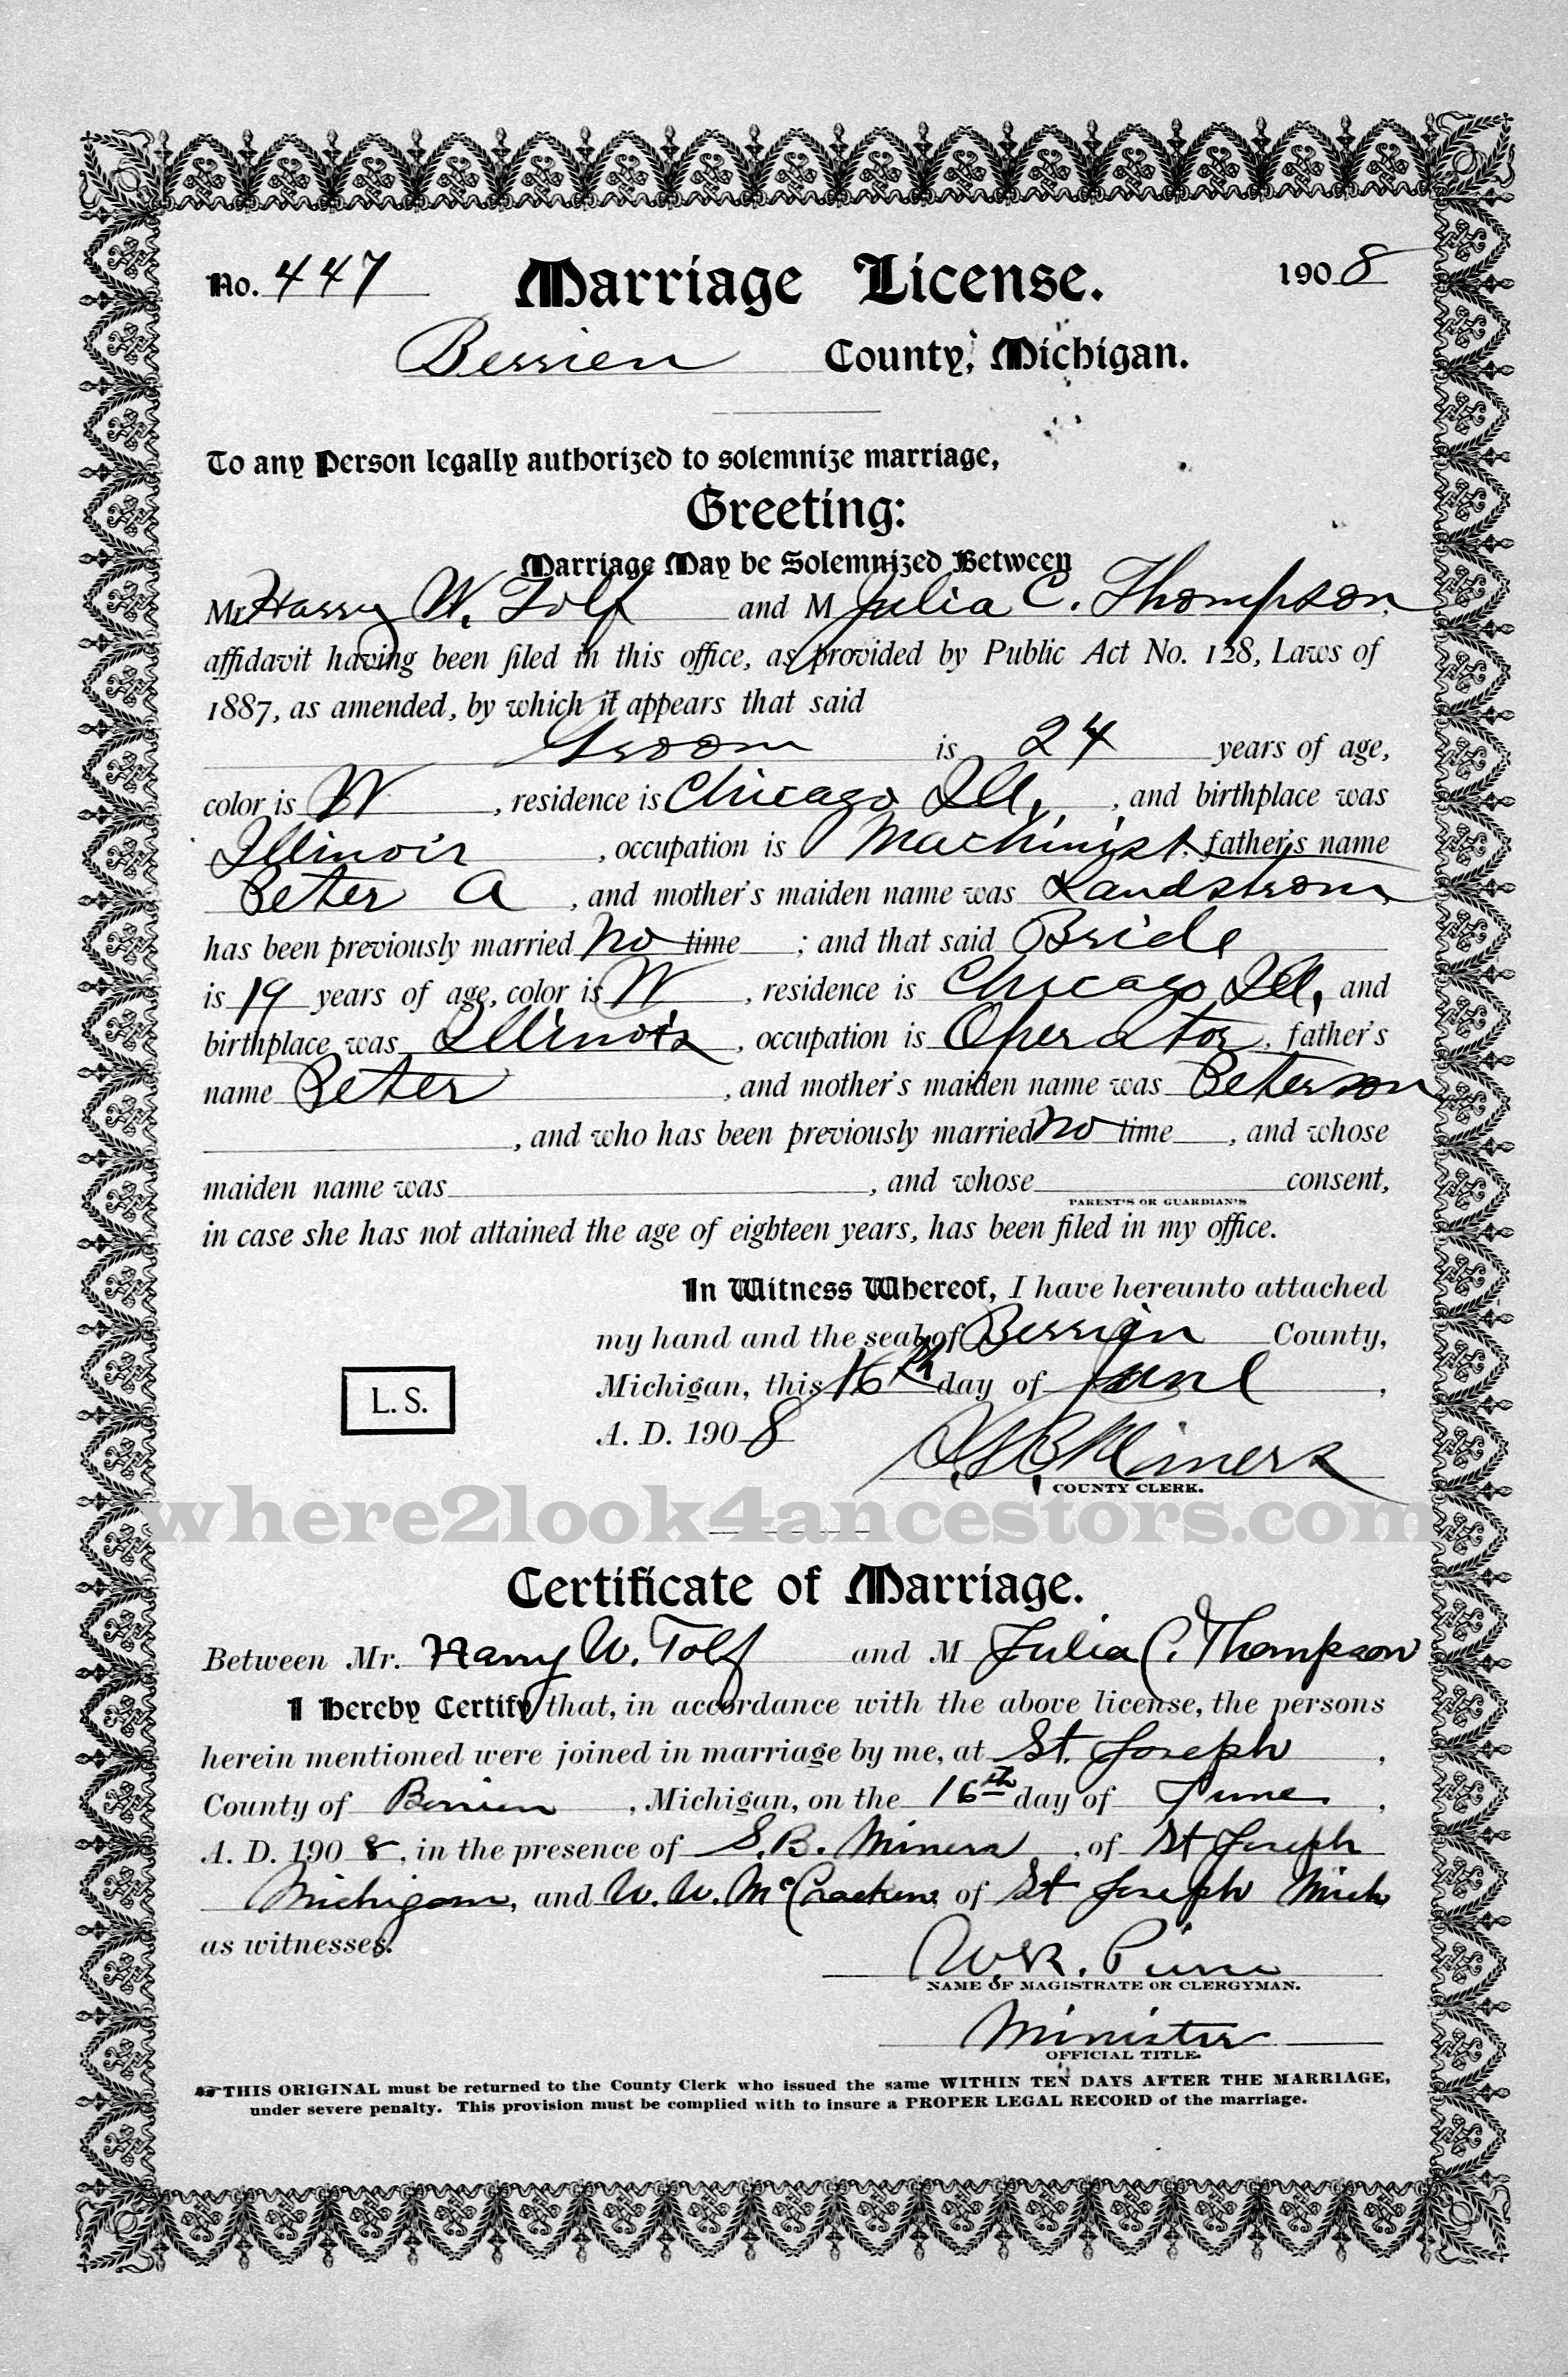 No. 447 Marriage License. 1908
Berrien County, Michigan.
To any Person legally authorized to solemnize marriage,
Greeting:
Marriage May be Solemnized Between
Mr Harry W. Tolf and M Julia C. Thompson,
affidavit having been filed in this office, as provided by Public Act No. 128, Laws of
1887, as amended, by which it appears that said
Groom is 24 years of age,
color is W, residence is Chicago Ill., and birthplace was
Illinois, occupation is Machinist, father's name
Peter A, and mother's maiden name was Landstrom,
has been previously married no time; and that said Bride
is 19 years of age, color is W, residence is Chicago Ill, and
birthplace was Illinois, occupation is Operator, father's
name Peter, and mother's maiden name was Peterson
, and who has been previously married no time, and whose
maiden name was , and whose consent,
PARENT'S OR GUARDIAN'S
in case she has not attained the age of eighteen years, has been filed in my office.
In Witness Whereof, I have hereunto attached
my hand and the seal of Berrien County,
Michigan, this 16th day of June,
L. S.
A. D. 1908
Miners
COUNTY CLERK.
where2look4ancestors.com
Certificate of Marriage.
Between Mr. Harry W. Tolf and M Julia C. Thompson
I Hereby Certify that, in accordance with the above license, the persons
herein mentioned were joined in marriage by me, at St. Joseph,
County of Berrien, Michigan, on the 16th day of June,
A. D. 1908, in the presence of S. B. Miners, of St Joseph
Michigan, and W. W. McCracken, of St Joseph Mich
as witnesses.
W. R.
NAME OF MAGISTRATE OR CLERGYMAN.
Minister
OFFICIAL TITLE.
THIS ORIGINAL must be returned to the County Clerk who issued the same WITHIN TEN DAYS AFTER THE MARRIAGE,
under severe penalty. This provision must be complied with to insure a PROPER LEGAL RECORD of the marriage.